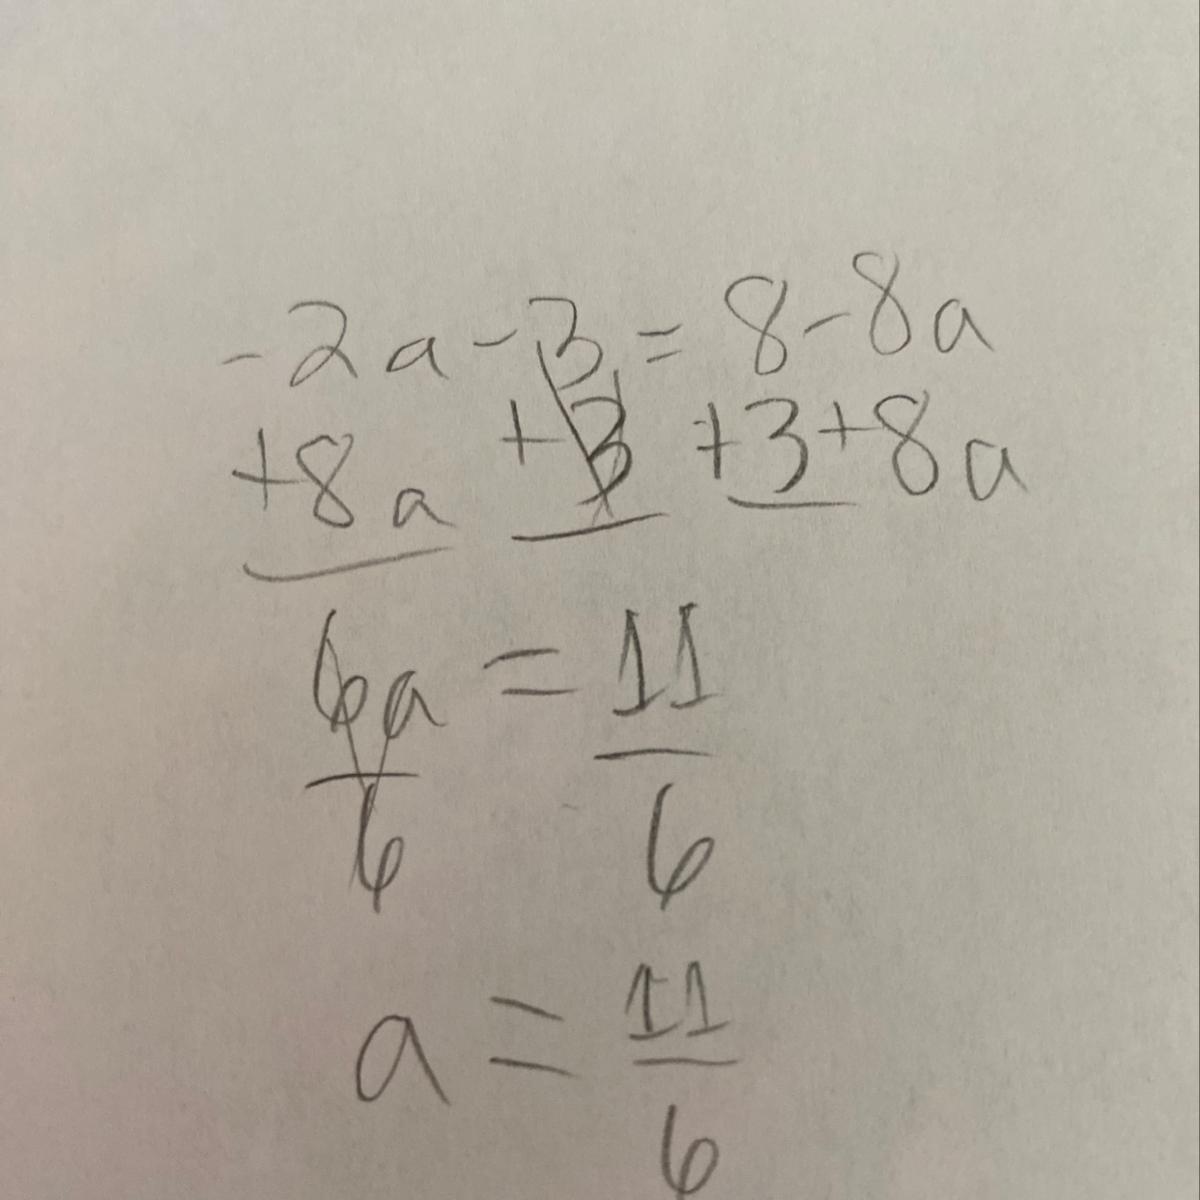 -2a-3=8-8a
+8a +3 +3+8a
6a = 11
6 6
a = 11
6